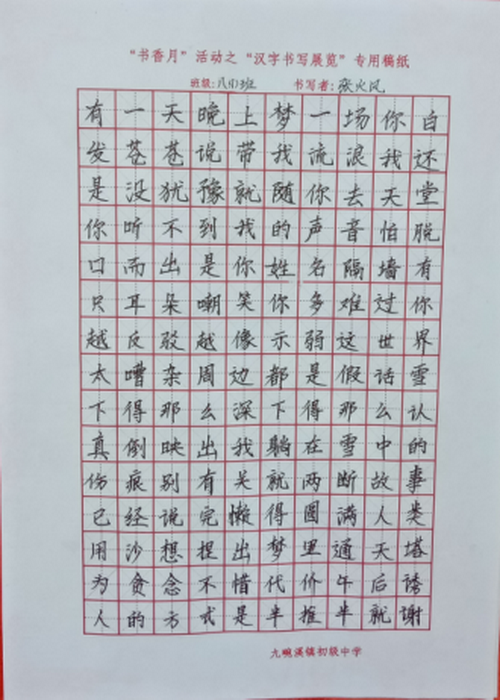 “书香月”活动之“汉字书写展览”专用稿纸
班级:八(1)班 书写者:张火凤
有一天晚上梦一场你白
发苍苍说带我流浪我还
是没犹豫就随你去天堂
你听不到我的声音怕脱
口而出是你姓名隔墙有
只耳朵嘲笑你多难过你
越反驳越像示弱这世界
太嘈杂周边都是假话雪
下得那么深下得那么认
真倒映出我躺在雪中的
伤痕别有关就两断故事
已经说完懒得圆满人类
用沙想捏出梦里通天塔
为贪念不惜代价午后诱
人的方式是半推半就谢
九畹溪镇初级中学